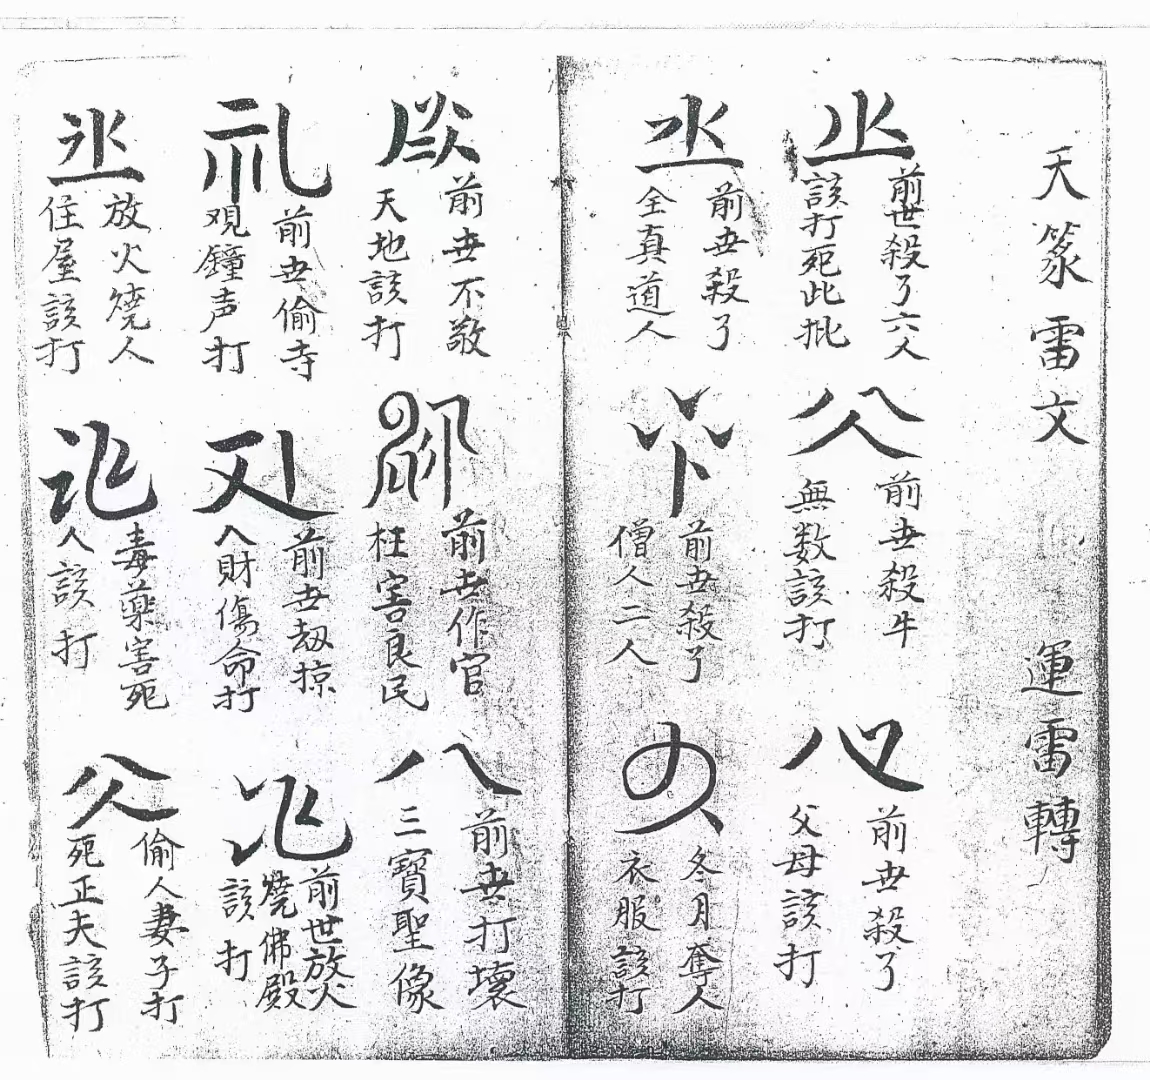 天篆雷文　運雷轉
前世殺了六人
該打死此批
前世殺牛
無数該打
前世殺了
父母該打
前世殺了
全真道人
前世殺了
僧人二人
冬月奪人
衣服該打
前世不敬
天地該打
前世作官
枉害良民
前世打壞
三寳聖像
前世偷寺
观鐘声打
前世刼掠
人財傷命打
前世放火
燒佛殿
該打
放火燒人
住屋該打
毒藥害死
人該打
偷人妻子打
死正夫該打